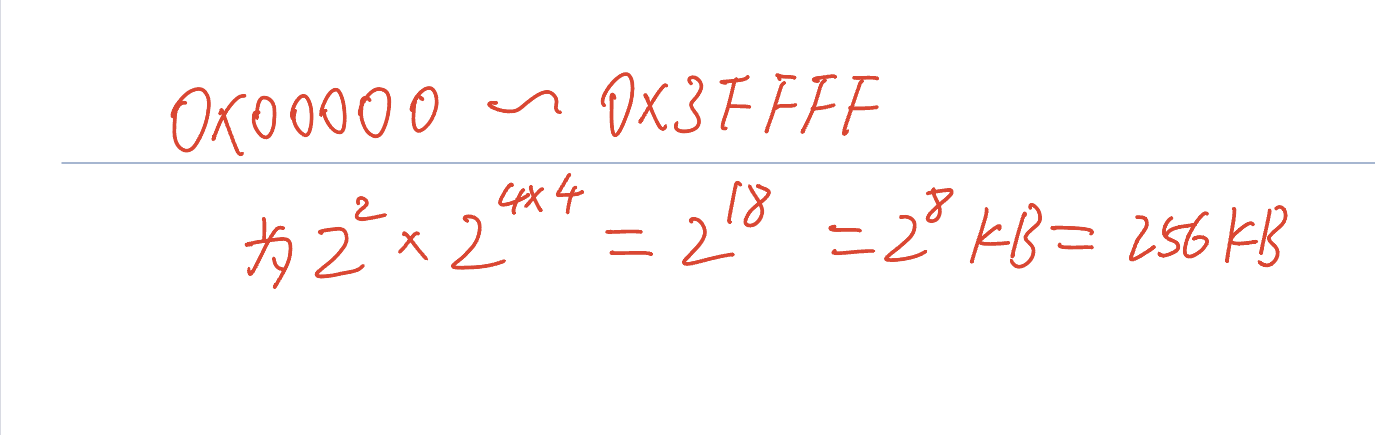 0x00000 ~ 0x3FFFF
为 2² × 2⁴ˣ⁴ = 2¹⁸ = 2⁸ KB = 256 KB